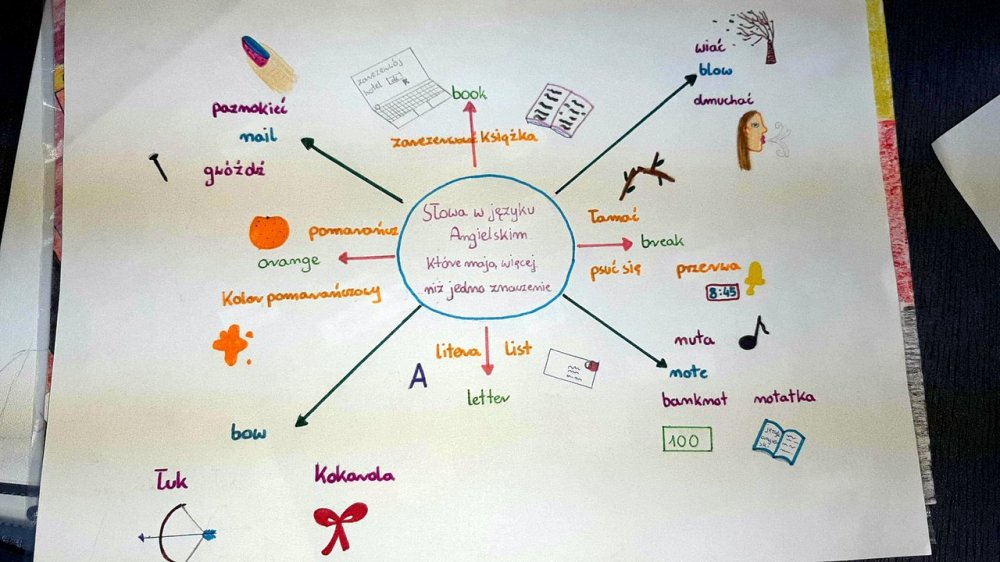 Słowa w języku
Angielskim
Które mają więcej
niż jedno znaczenie
book
zarezerwować Książka
zarezerwój
hotel ok
wiać
blow
dmuchać
łamać
break
psuć się
przerwa
8:45
nuta
note
banknot
notatka
100
litera
List
letter
A
bow
Łuk
Kokarda
pomarańcz
orange
Kolor pomarańczowy
paznokieć
nail
gwóźdź